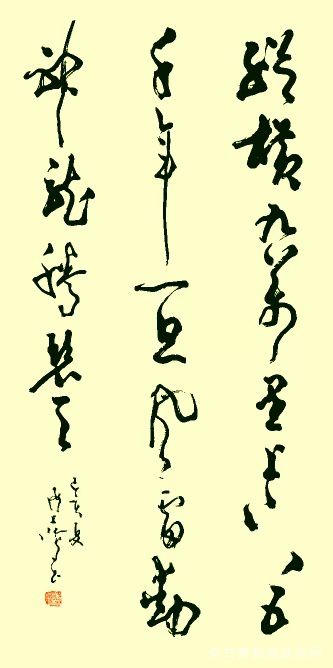 縱橫九萬里上下五
千年一旦風雷動
神龍騰碧天
己亥夏